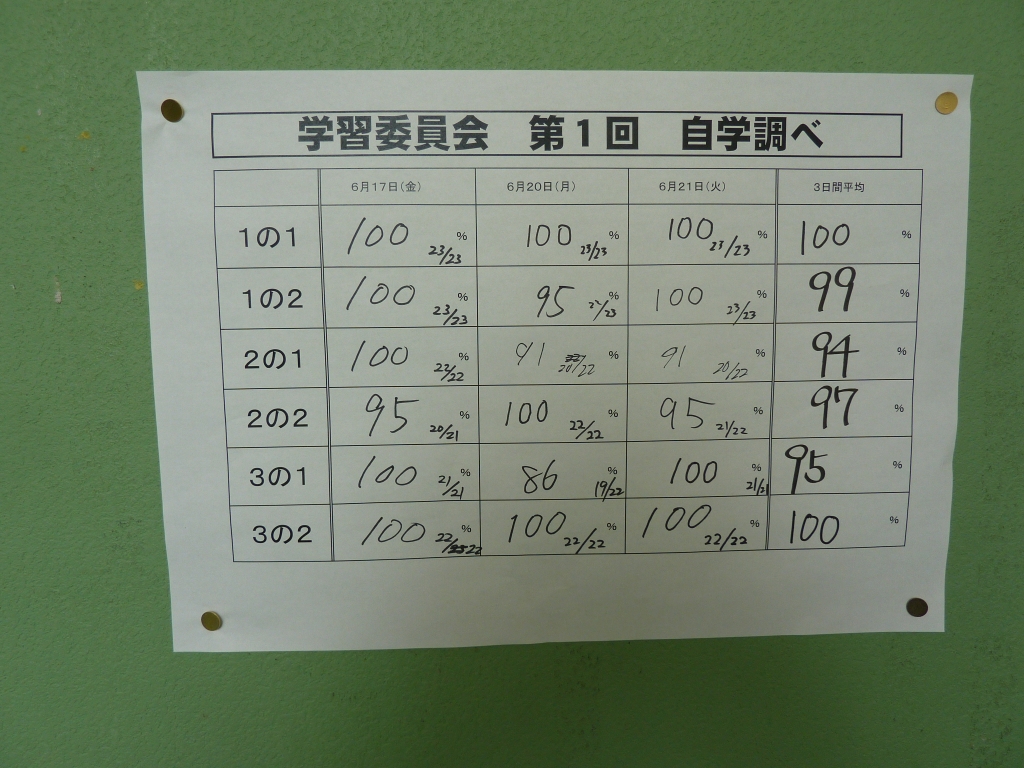 学習委員会 第1回 自学調べ
6月17日(金) 6月20日(月) 6月21日(火) 3日間平均
1の1 100 % 23/23 100 % 23/23 100 % 23/23 100 %
1の2 100 % 23/23 95 % /23 100 % 23/23 99 %
2の1 100 % 22/22 91 % 20/22 91 % 20/22 94 %
2の2 95 % 20/21 100 % 22/22 95 % 21/22 97 %
3の1 100 % 21/21 86 % 19/22 100 % 21/21 95 %
3の2 100 % 22/22 100 % 22/22 100 % 22/22 100 %